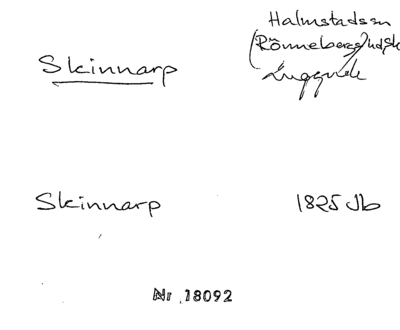 Skinnarp
Halmstads sn
(Rönnebergs) hd Sk
Luggude
Skinnarp
1825 Jb
Nr 18092